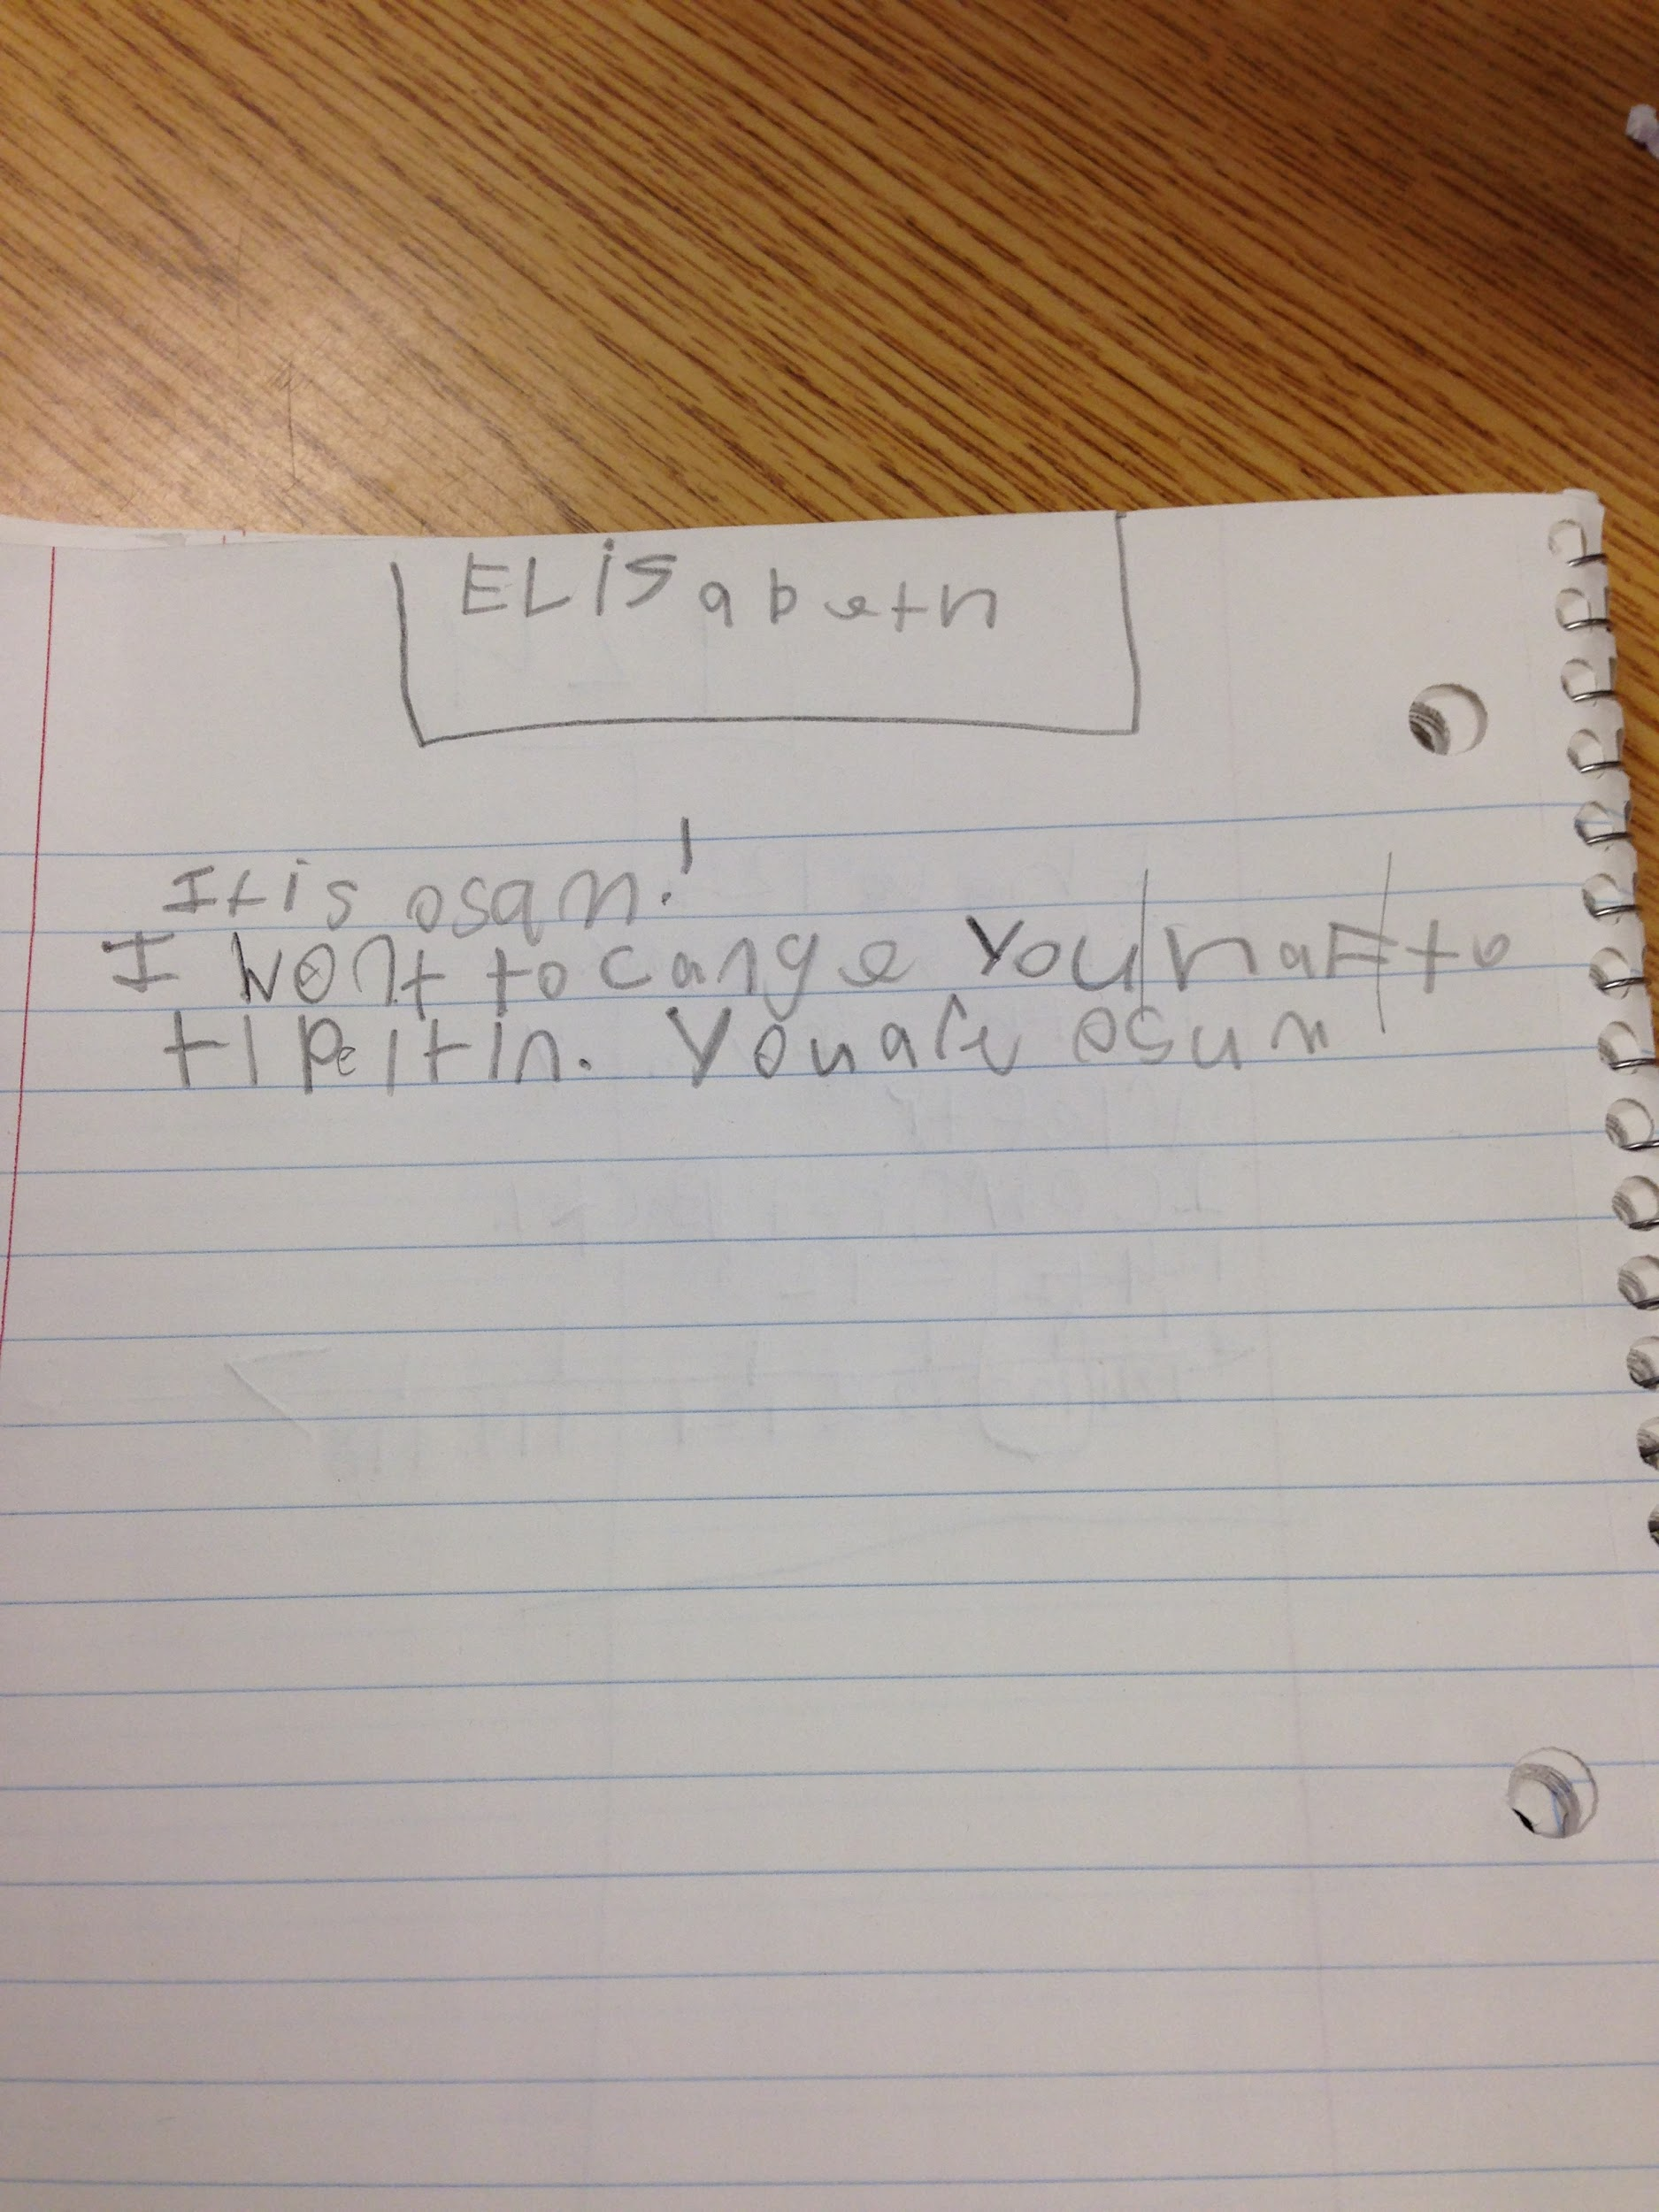 ELiSabeth
It is osam!
I wont to cange you haf to
tipe it in. You are osum